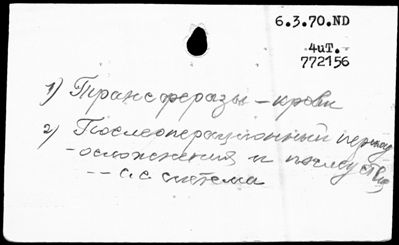 6.3.70.ND
4иT.
772156
1) Трансферазы – крови
2) Послеоперационный период
- осложнения и последствия
-- с.с. система